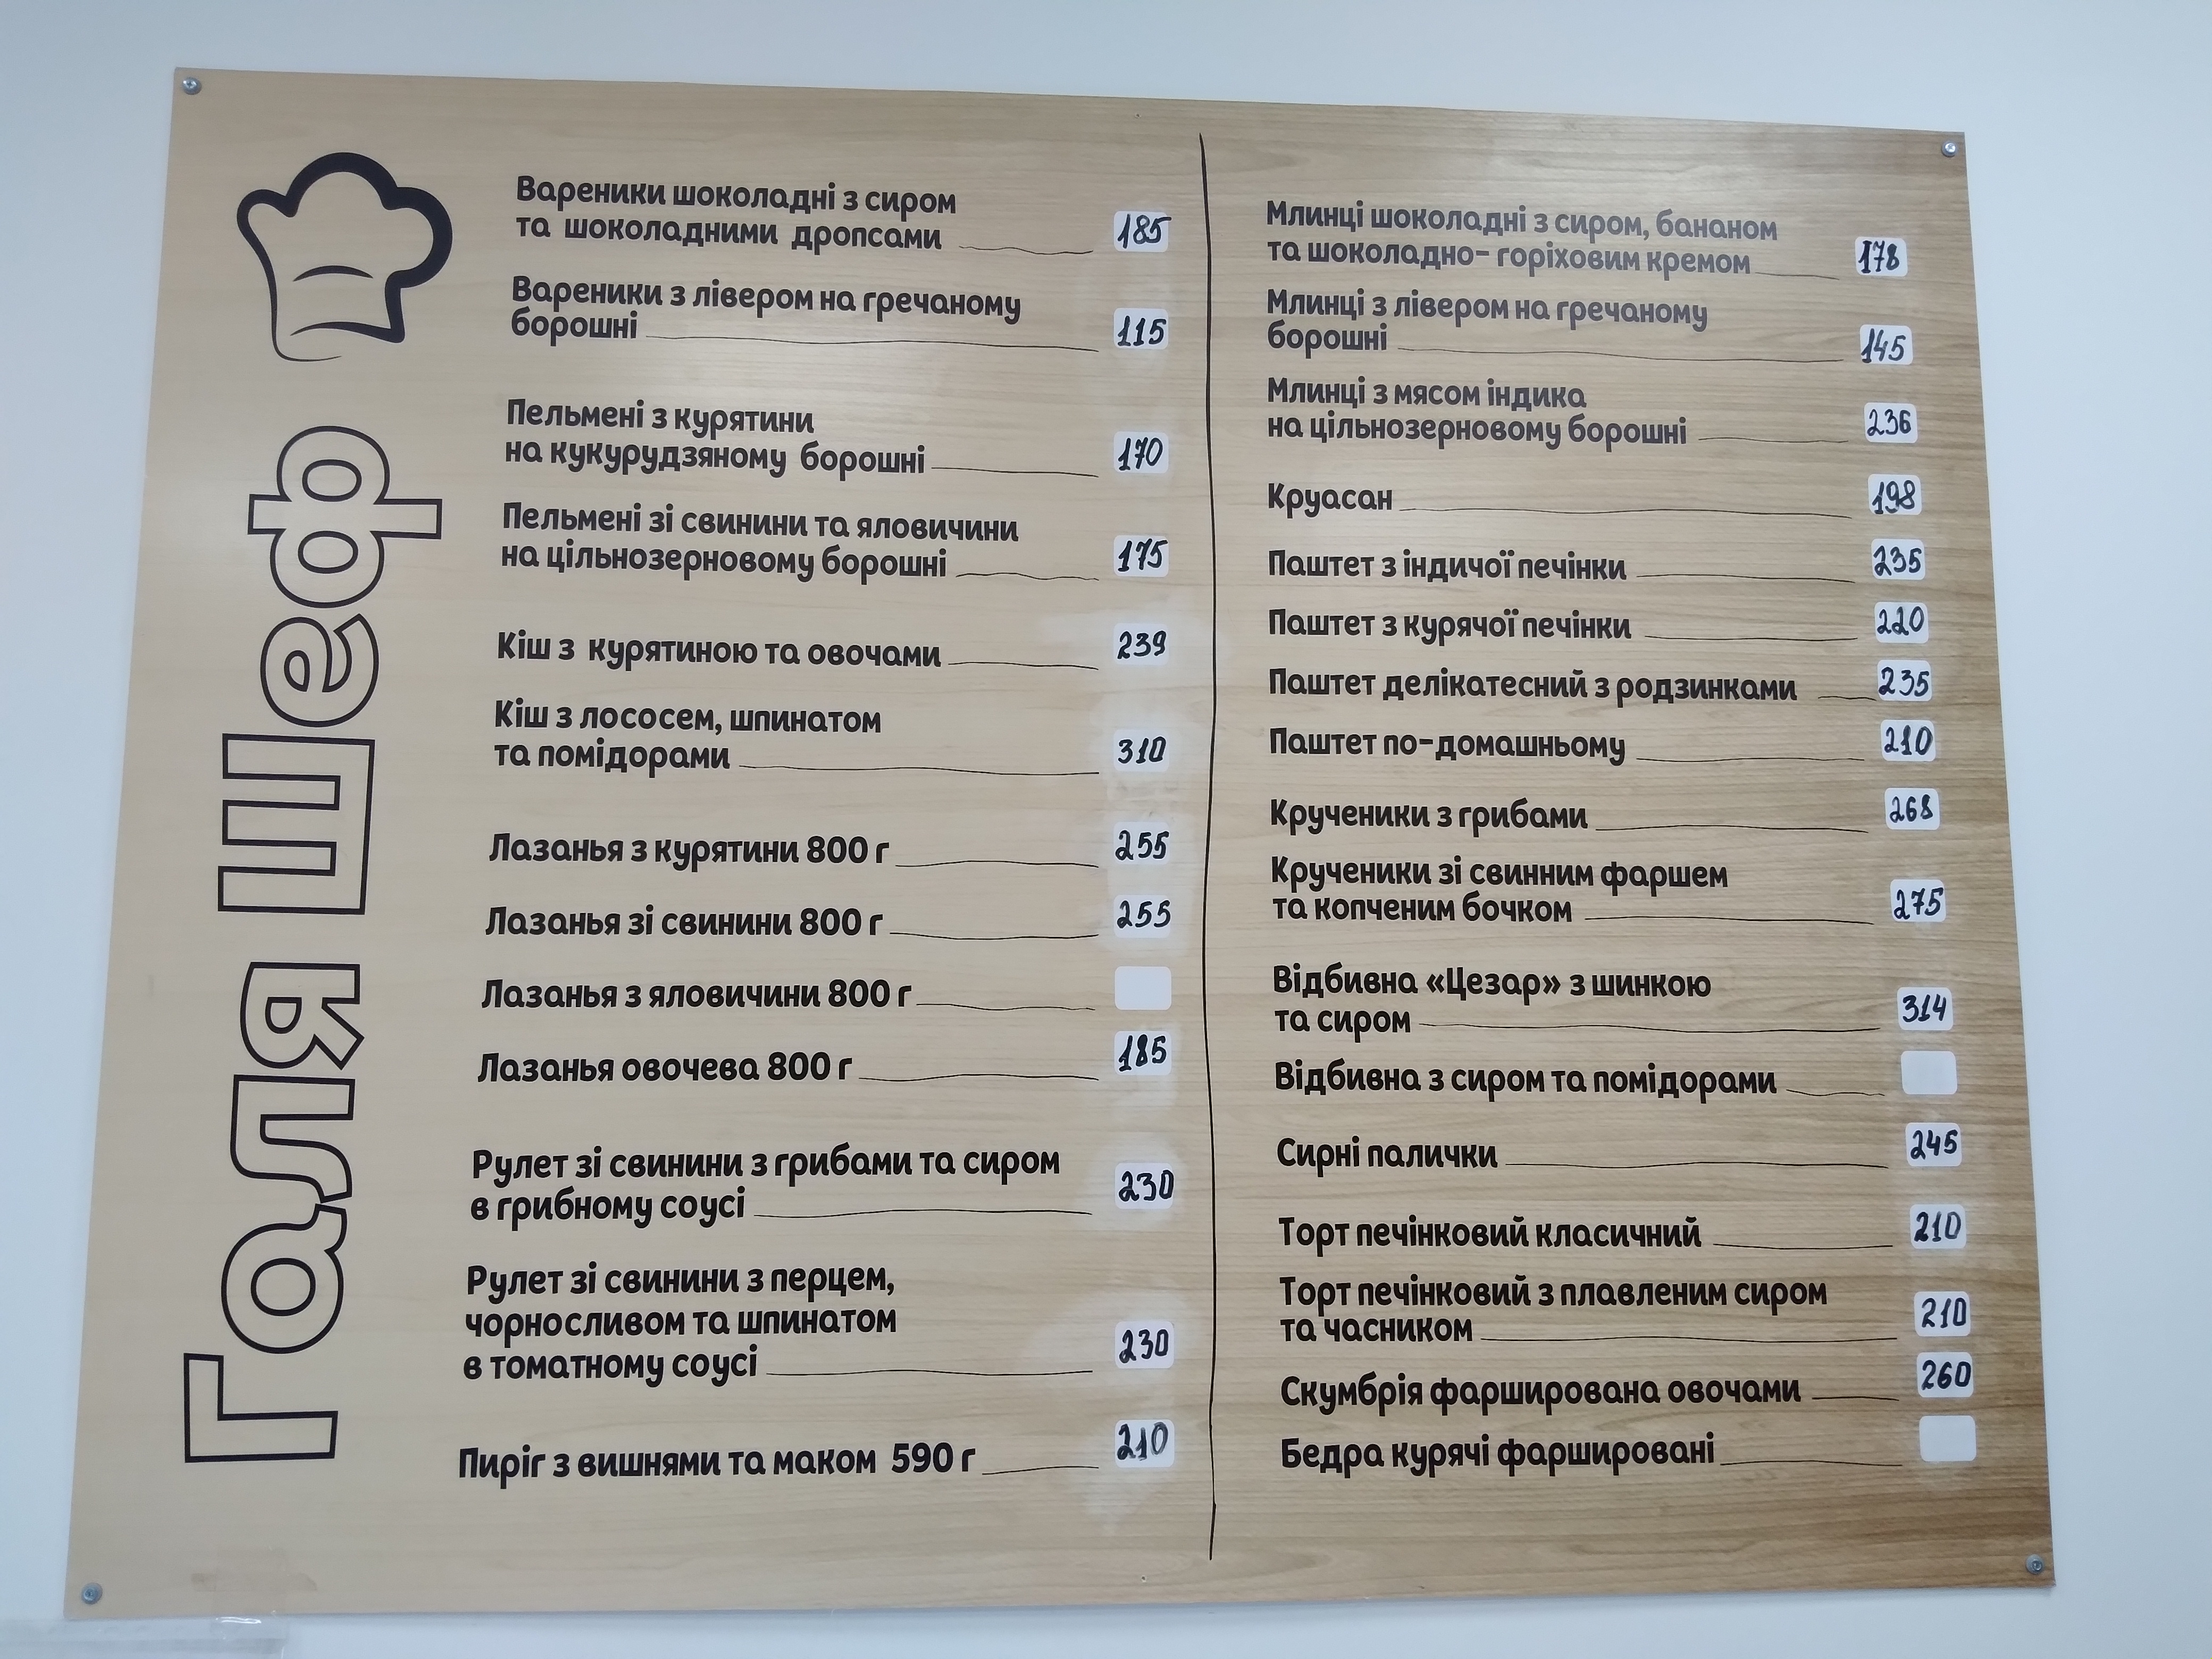 Галя Шеф
Вареники шоколадні з сиром
та шоколадними дропсами 185
Вареники з лівером на гречаному
борошні 115
Пельмені з курятини
на кукурудзяному борошні 170
Пельмені зі свинини та яловичини
на цільнозерновому борошні 175
Кіш з курятиною та овочами 239
Кіш з лососем, шпинатом
та помідорами 310
Лазанья з курятини 800 г 255
Лазанья зі свинини 800 г 255
Лазанья з яловичини 800 г
Лазанья овочева 800 г 185
Рулет зі свинини з грибами та сиром
в грибному соусі 230
Рулет зі свинини з перцем,
чорносливом та шпинатом
в томатному соусі 230
Пиріг з вишнями та маком 590 г 210
Млинці шоколадні з сиром, бананом
та шоколадно- горіховим кремом 178
Млинці з лівером на гречаному
борошні 145
Млинці з мясом індика
на цільнозерновому борошні 236
Круасан 198
Паштет з індичої печінки 235
Паштет з курячої печінки 220
Паштет делікатесний з родзинками 235
Паштет по-домашньому 210
Крученики з грибами 268
Крученики зі свинним фаршем
та копченим бочком 275
Відбивна «Цезар» з шинкою
та сиром 314
Відбивна з сиром та помідорами
Сирні палички 245
Торт печінковий класичний 210
Торт печінковий з плавленим сиром
та часником 210
Скумбрія фарширована овочами 260
Бедра курячі фаршировані